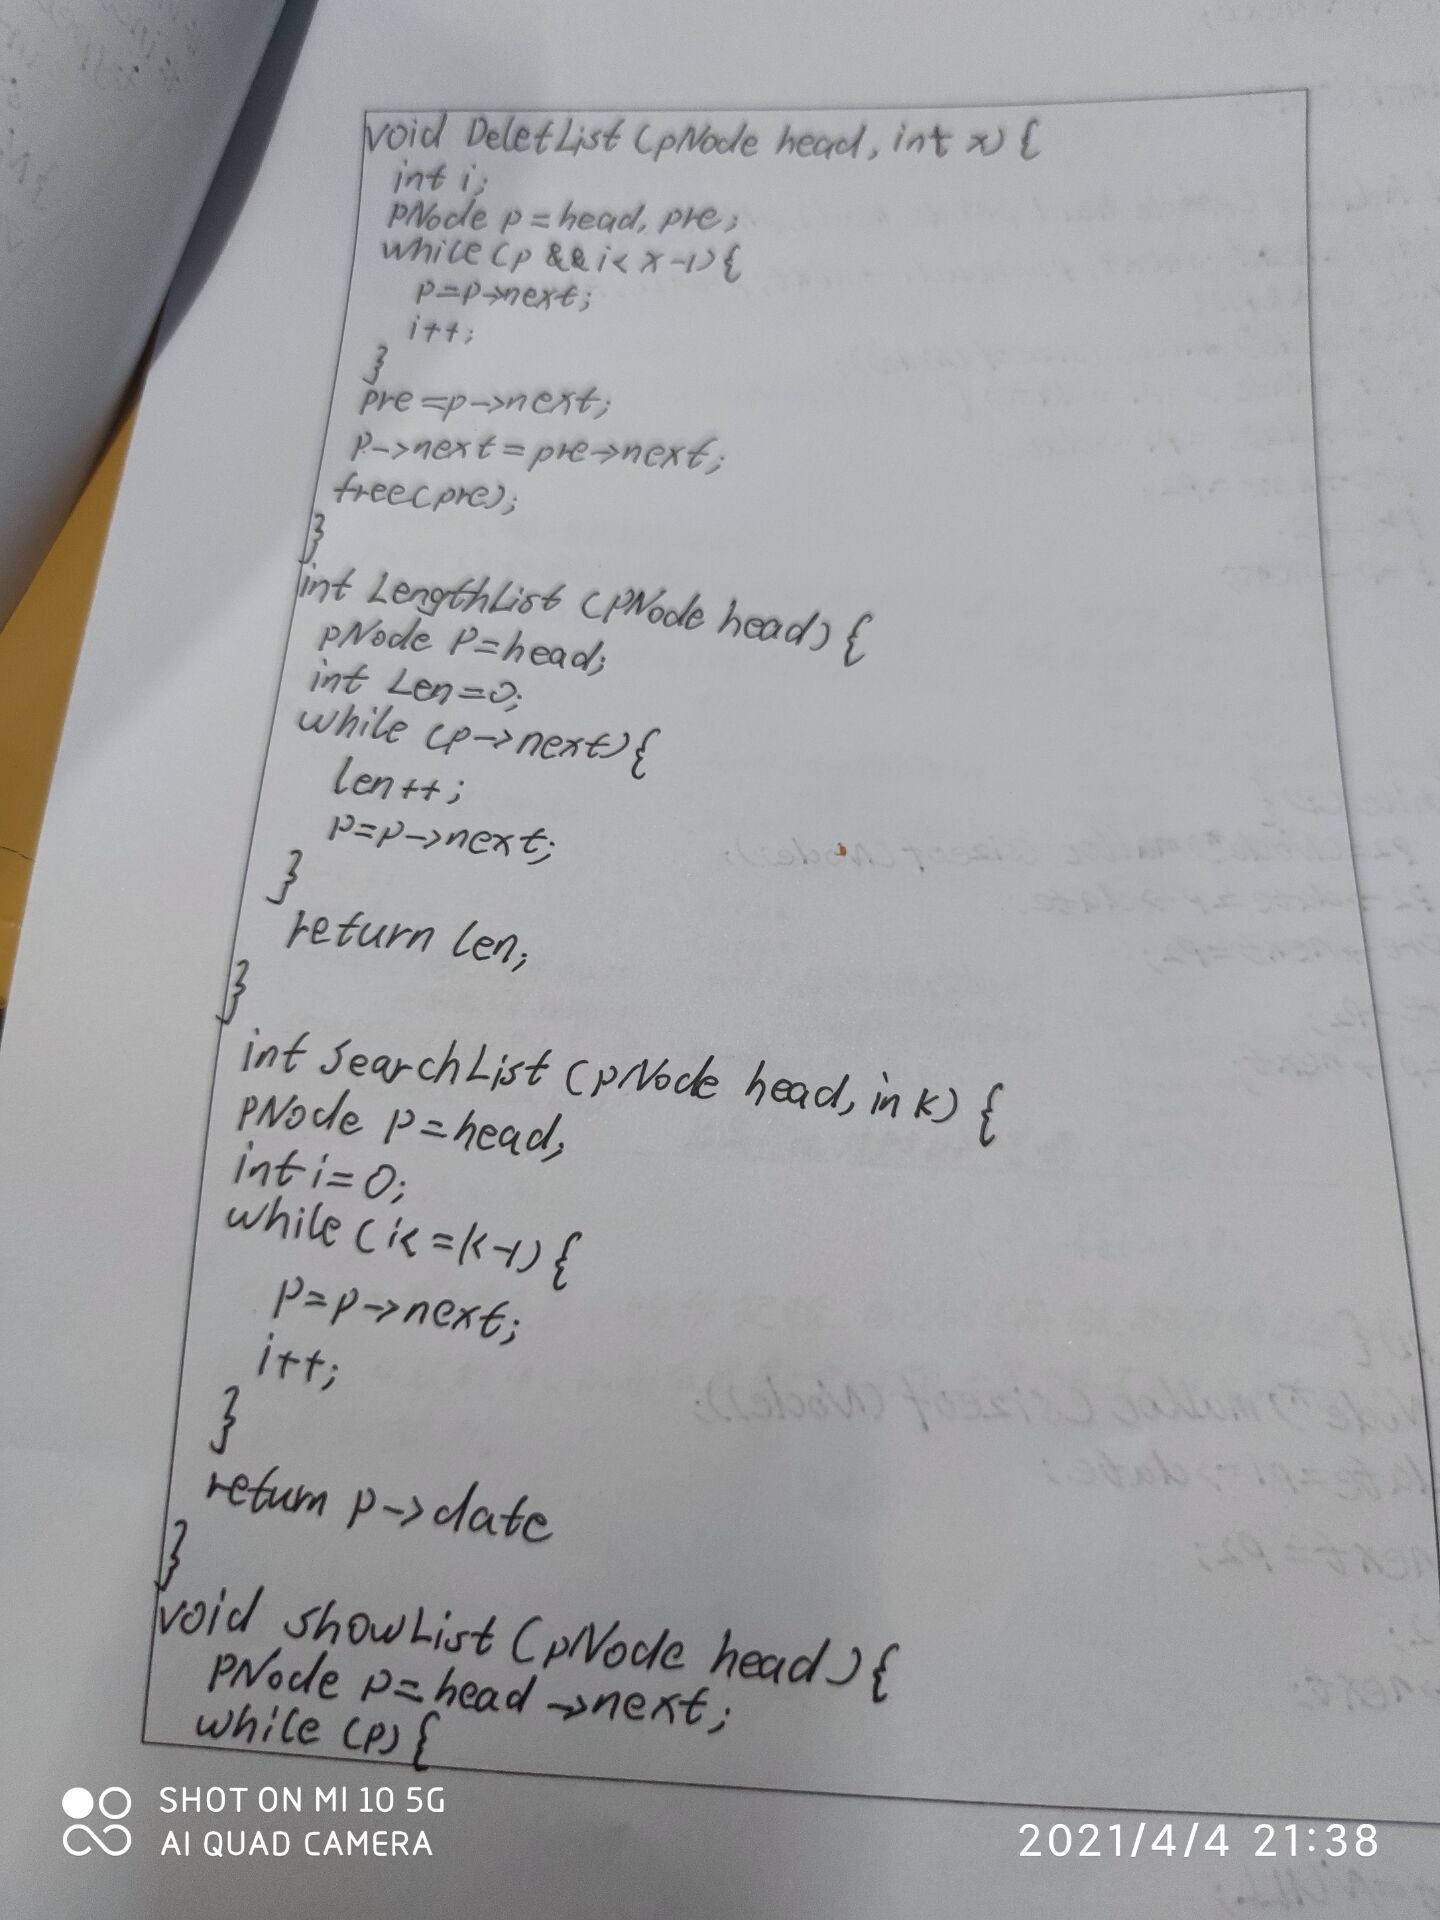 void DeletList (pNode head, int x) {
int i;
pNode p=head, pre;
while (p && i< x-1) {
p=p->next;
i++;
}
pre=p->next;
p->next=pre->next;
free(pre);
}
int LengthList (pNode head) {
pNode p=head;
int Len=0;
while (p->next) {
len++;
p=p->next;
}
return len;
}
int SearchList (pNode head, in k) {
pNode p=head;
int i=0;
while (i<=k-1) {
p=p->next;
i++;
}
return p->date
}
void showList (pNode head) {
pNode p=head->next;
while (p) {
SHOT ON MI 10 5G
AI QUAD CAMERA
2021/4/4 21:38